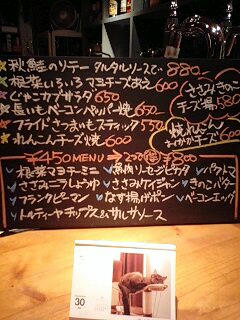 ★秋鮭のソテー タルタルソースで 880-
★根菜いろいろマヨチーズあえ 600-
★じゃがカブサラダ 650
★長いもベーコンペッパー焼 650-
★フライドさつまいもスティック 550
★れんこんチーズ焼 600
ささみきのこ
チーズ揚 580
焼れんこん
チーズ 600
¥450 MENU
根菜マヨチーミニ
ささみニラしょうゆ
ささみケイジャン
きのこバター
フランクピーマン
なす揚げポン
ベーコンエッグ
トルティーヤチップス&サルサソース
30